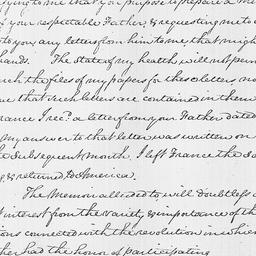 ying to me that you purpose to prepare a me
of your respectable Father, & requesting me to c
to you any letters from him to me, that might
hands. The state of my health will not perm
rch the files of my papers for those letters, no
ue that such letters are contained in them
rance I rec.? a letter from your Father dated
my answer to that letter was written on
he subsequent month. I left France the da
g, & returned to America.
The Memoir alluded to will doubtless
interest from the variety & importance of th
ions connected with the revolution in which
her had the honor of participating